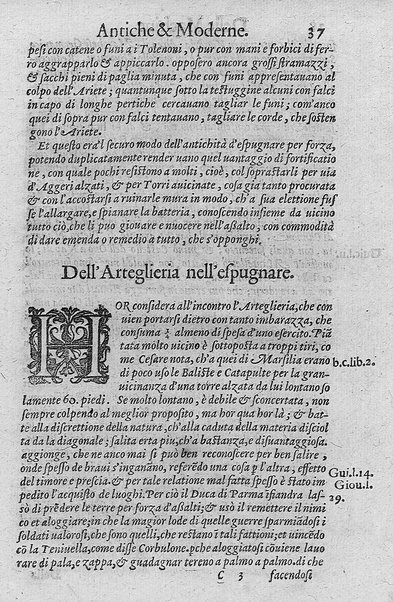 Antiche & Moderne. 37
pesi con catene o funi a i Tolenoni, o pur con mani e forbici di fer-
ro aggrapparlo & appiccarlo. opposero ancora grossi stramazzi,
& sacchi pieni di paglia minuta, che con funi appresentauano al
colpo dell'Ariete; quantunque sotto la testuggine alcuni con falci
in capo di longhe pertiche cercauano tagliar le funi; com'anco
quei di sopra pur con falci tentauano, tagliare le corde, che sosten
gono l'Ariete.
Et questo era'l securo modo dell'antichità d'espugnare per forza,
potendo duplicatamente render uano quel uantaggio di fortificatio
ne, con quale pochi resistono a molti, cioè, col soprastarli per uia
d'Aggeri alzati, & per Torri auicinate, cosa già tanto procurata
& con l'accostarsi a ruinarle mura in modo, ch'a sua elettione fus
se l'allargare, e spianare la batteria, conoscendo insieme da uicino
tutto ciò, che li può giouare e nuocere nell'assalto, con commodità
di dare emenda o remedio a tutto, che s'opponghi.
Dell'Arteglieria nell'espugnare.
HOR considera all'incontro l'Arteglieria, che con
uien portarsi dietro con tanto imbarazza, che
consuma ⅔ almeno di spesa d'uno esercito. Piā
tata molto uicino è sottoposta a troppi tiri, co
me Cesare nota, ch'a quei di Marsilia erano
di poco uso le Baliste e Catapulte per la gran-
uicinanza d'una torre alzata da lui lontano so
lamente 60. piedi. Se molto lontano, è debile & sconcertata, non
sempre colpendo al meglior proposito, ma hor qua hor là; & bat-
te alla discrettione della natura, ch'alla caduta della materia disciol
ta da la diagonale; salita erta piu, ch'a bastanza, e disuantaggiosa.
aggionge, che ne anco mai si può ben reconoscere per ben salire,
onde spesso de braui s'ingānano, referēdo una cosa p l'altra, effetto
del timore e prescia. & per tale relatione mal fatta spesso è stato im
pedito l'acquisto de luoghi. Per ciò il Duca di Parma ifiandra las-
sò di prēdere le terre per forza d'assalti; & usò il remettere il nimi
co et aloggiare; in che la magior lode di quelle guerre sparmiādosi i
soldati ualorosi, che sono quelli, che restano i tali fattioni; et uincēdo
cō la Teniuella, come disse Corbulone. pche aloggiatosi cōuiene lauo
rare di pala, e zappa, & guadagnar tereno a palmo a palmo. di che
C 3 facendosi
b.c.lib.2.
Gui.l.14.
Giou.l.
29.